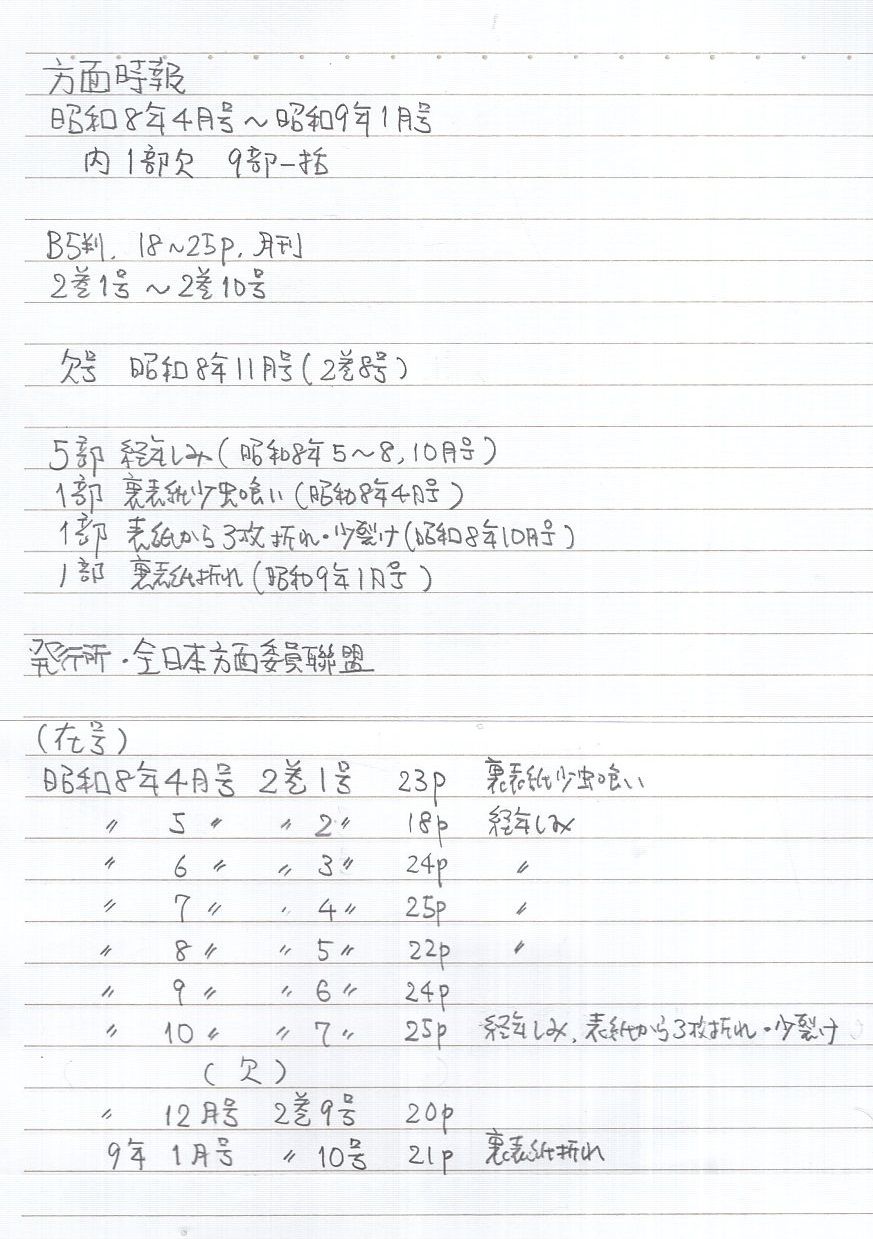 方面時報
昭和8年4月号～昭和9年1月号
内1部欠 9部一括
B5判, 18～25p, 月刊
2巻1号～2巻10号
欠号 昭和8年11月号(2巻8号)
5部 経年しみ(昭和8年5～8,10月号)
1部 裏表紙少虫喰い(昭和8年4月号)
1部 表紙から3枚折れ・少裂け(昭和8年10月号)
1部 裏表紙折れ(昭和9年1月号)
発行所・全日本方面委員聯盟
(在号)
昭和8年4月号 2巻1号 23p 裏表紙少虫喰い
〃 5〃 〃2〃 18p 経年しみ
〃 6〃 〃3〃 24p 〃
〃 7〃 〃4〃 25p 〃
〃 8〃 〃5〃 22p 〃
〃 9〃 〃6〃 24p
〃 10〃 〃7〃 25p 経年しみ, 表紙から3枚折れ・少裂け
(欠)
〃 12月号 2巻9号 20p
9年 1月号 〃10号 21p 裏表紙折れ